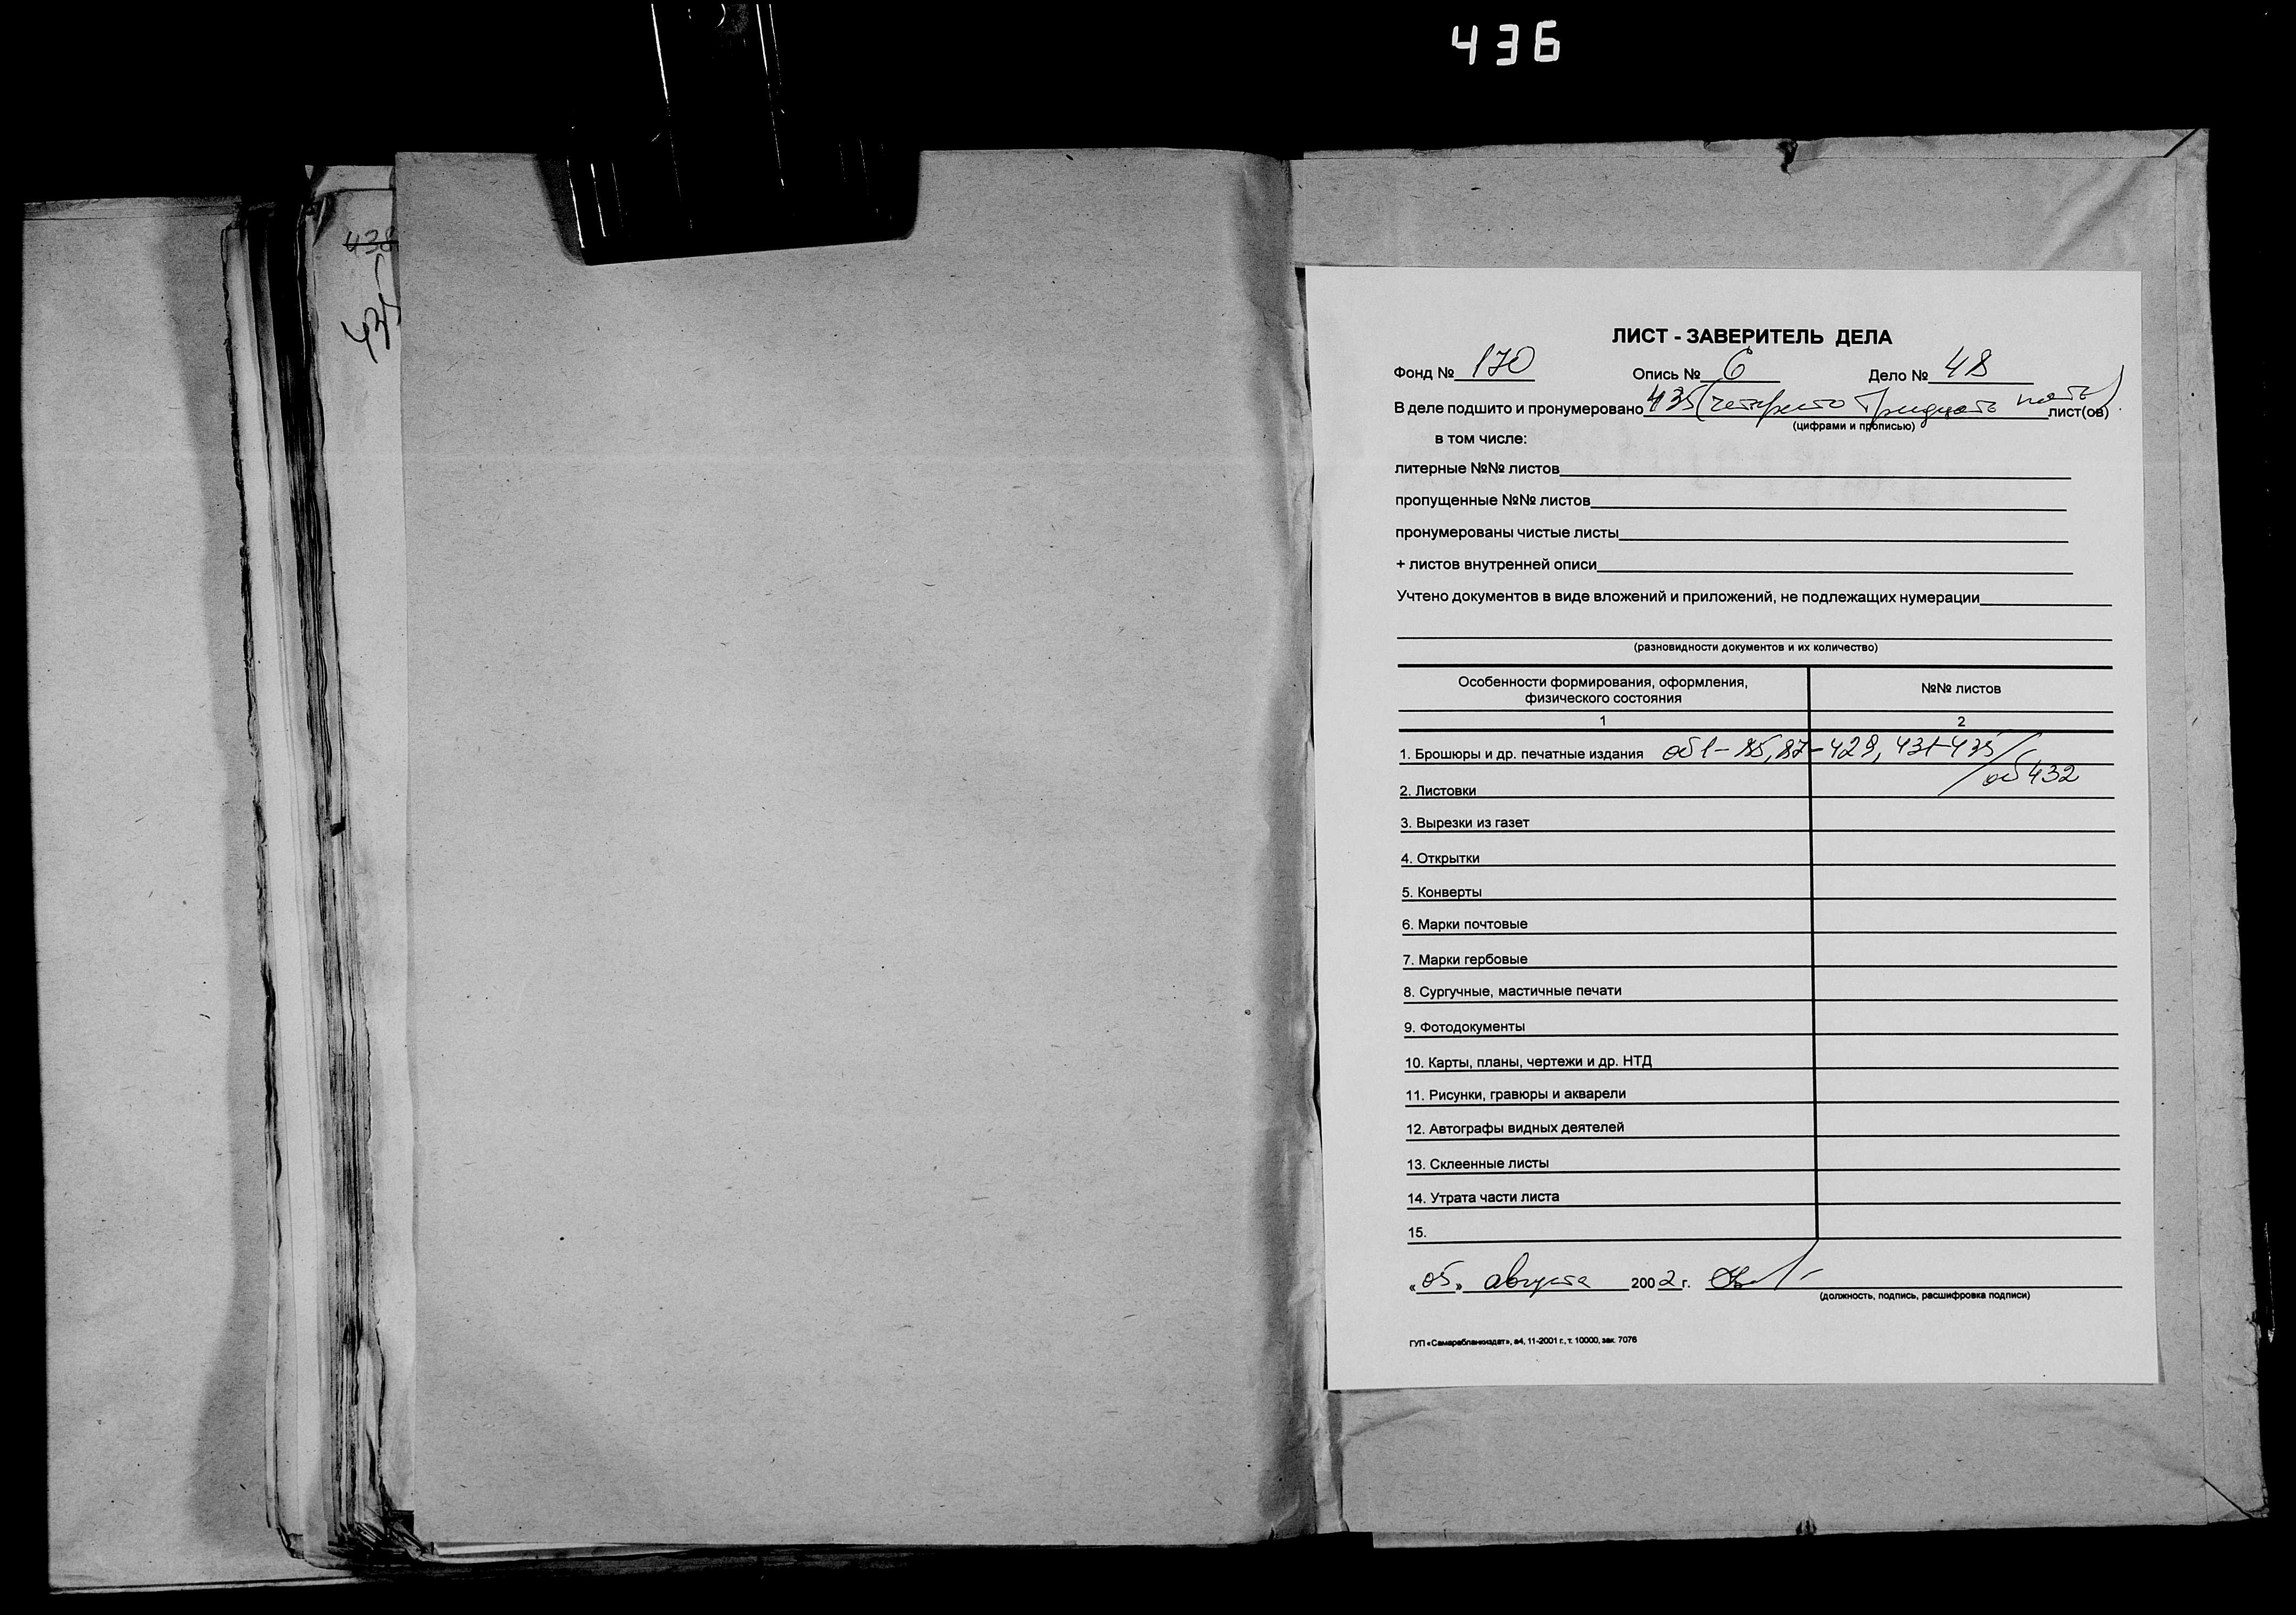 436
438
435
ЛИСТ - ЗАВЕРИТЕЛЬ ДЕЛА
Фонд № 170 Опись № 6 Дело № 48
В деле подшито и пронумеровано 435 (четыреста тридцать пять) лист(ов)
(цифрами и прописью)
в том числе:
литерные №№ листов
пропущенные №№ листов
пронумерованы чистые листы
+ листов внутренней описи
Учтено документов в виде вложений и приложений, не подлежащих нумерации
(разновидности документов и их количество)
Особенности формирования, оформления, №№ листов
физического состояния
1 2
1. Брошюры и др. печатные издания об 1-85, 87-429, 431-435/
/об 432
2. Листовки
3. Вырезки из газет
4. Открытки
5. Конверты
6. Марки почтовые
7. Марки гербовые
8. Сургучные, мастичные печати
9. Фотодокументы
10. Карты, планы, чертежи и др. НТД
11. Рисунки, гравюры и акварели
12. Автографы видных деятелей
13. Склеенные листы
14. Утрата части листа
15.
«05» августа 2002 г.
(должность, подпись, расшифровка подписи)
ГУП «Самарабланкиздат», а4, 11-2001 г., т. 10000, зак. 7076